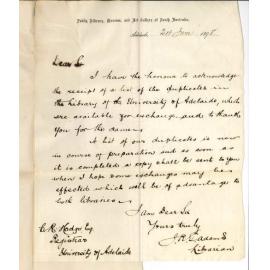 Public Library, Museum, and Art Gallery of South Australia.
Adelaide, 21st June 1898
Dear Sir
I have the honour to acknowledge
the receipt of a list of the duplicates in
the Library of the University of Adelaide, which
are available for exchange, and to thank
you for the same.
A list of our duplicates is now
in course of preparation and as soon as
it is completed a copy shall be sent to you
when I hope some exchanges may be
effected which will be of advantage to
both libraries.
I am Dear Sir
Yours truly
Librarian
C. R. Hodge Esq.
Registrar
University of Adelaide